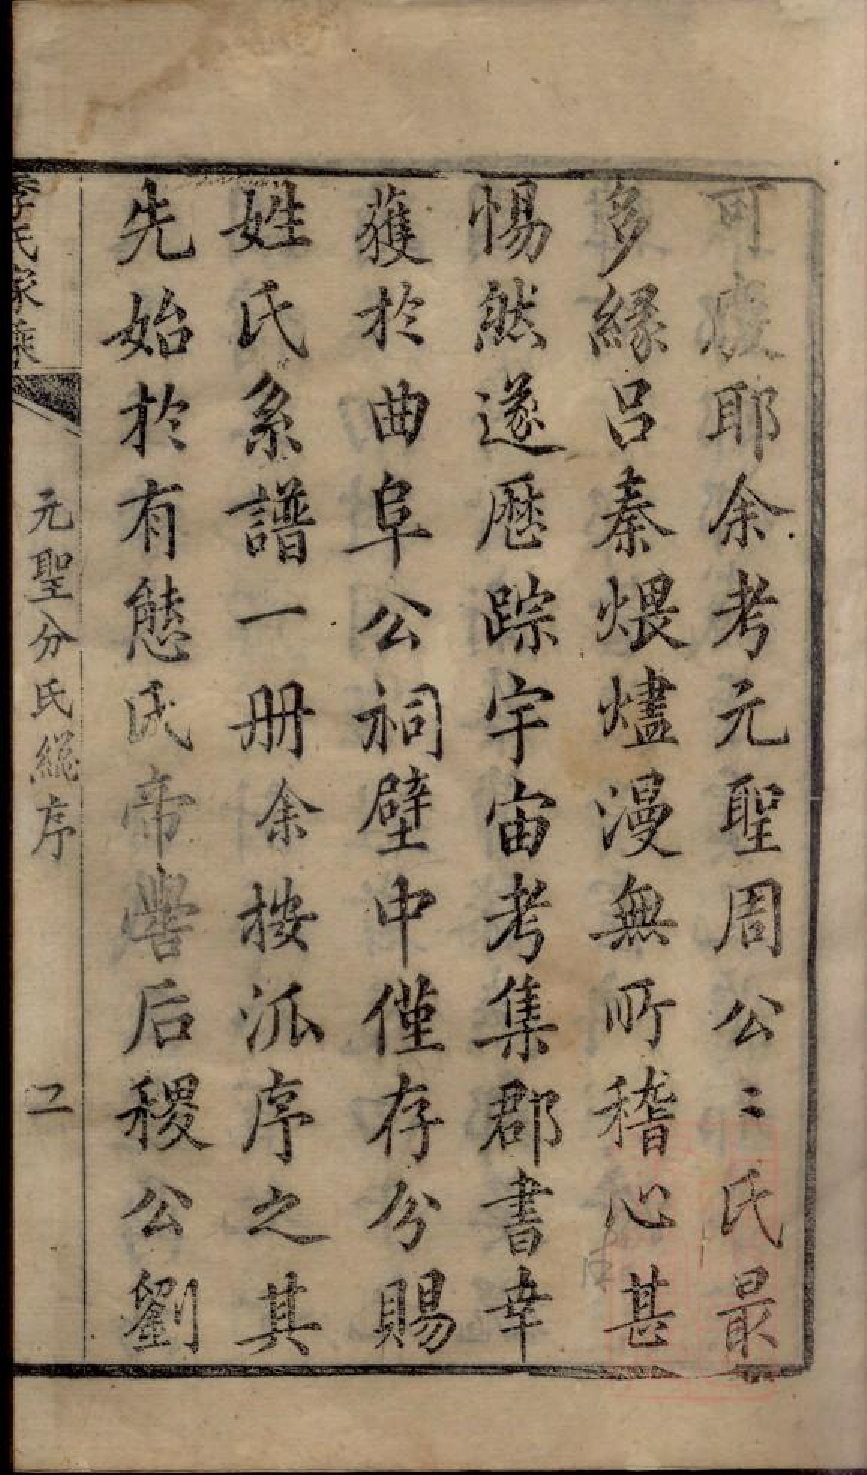 可廢耶余考元聖周公〻氏最
多緣呂秦煨燼漫無所稽心甚
惕然遂歷踪宇宙考集郡書幸
獲於曲阜公祠壁中僅存分賜
姓氏系譜一册余按派序之其
先始於有熊氏帝嚳后稷公劉
李氏家乘
元聖分氏總序
二